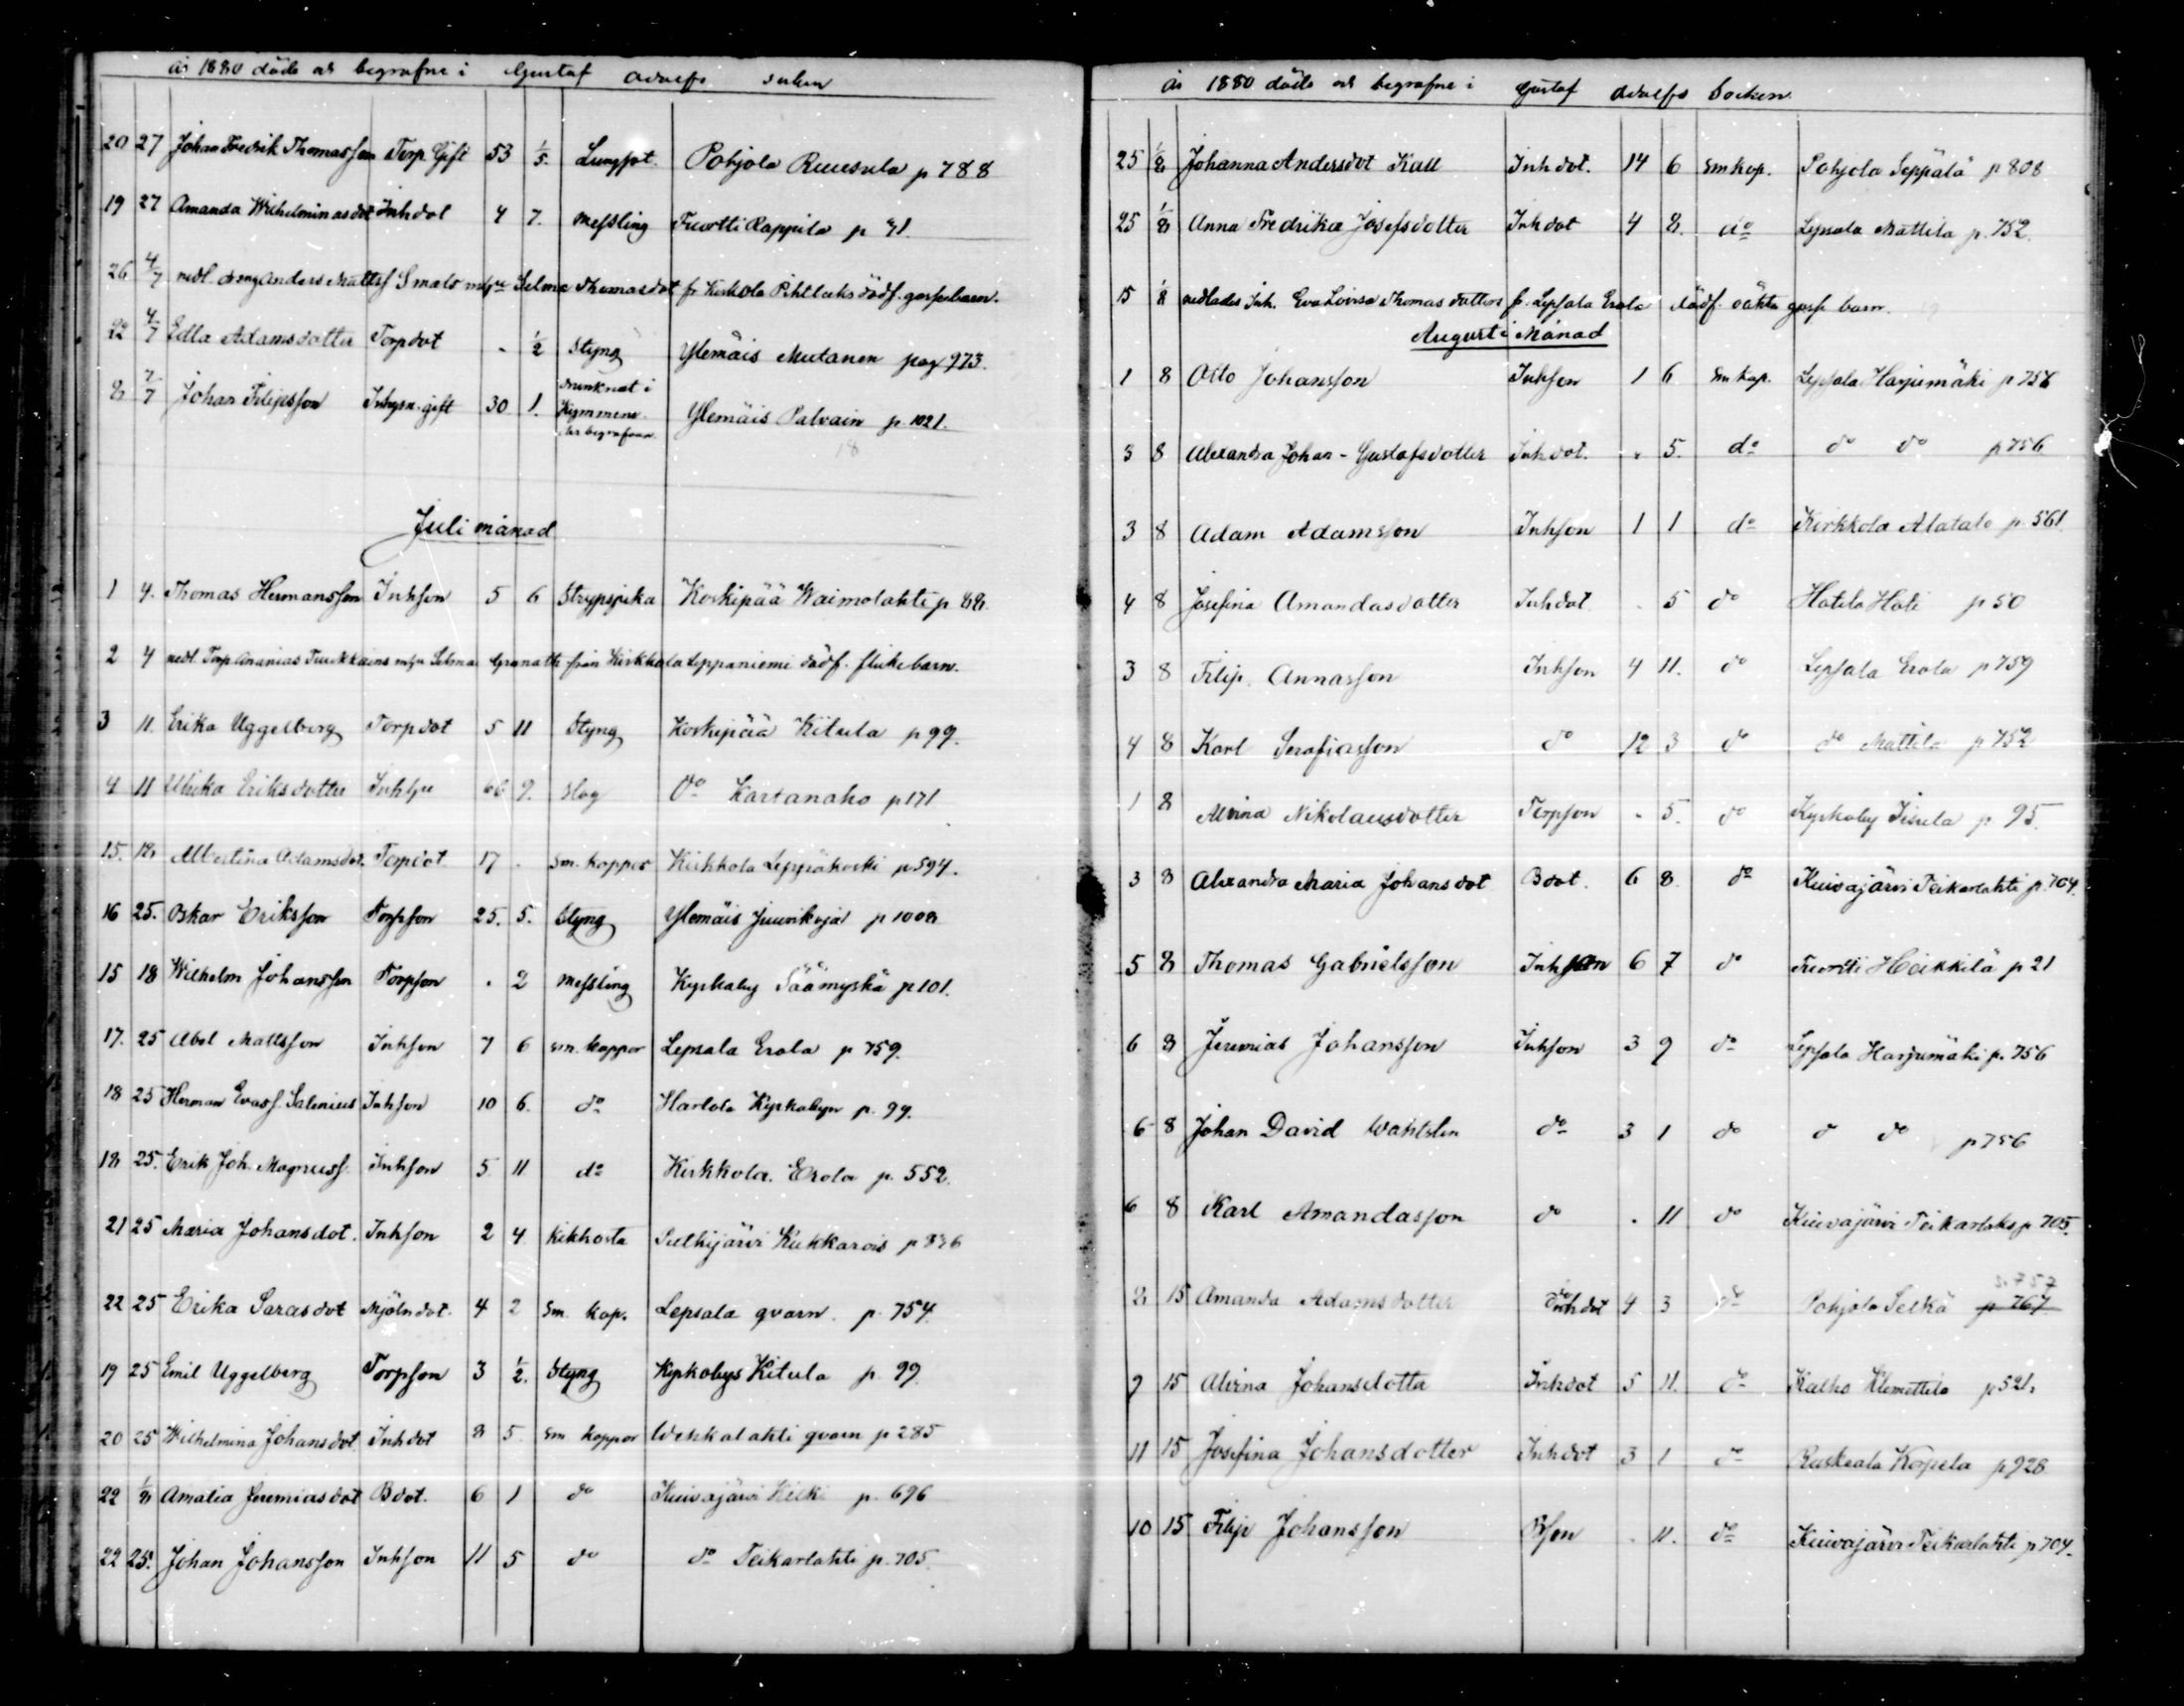 år 1880 döde och begrafne i Gustaf Adolfs socken
20 27 Johan Fredrik Thomasson Torp. Gift 53 1/5. Lungsot. Pohjola Ruusula p 788
19 27 Amanda Wilhelminasdot Inhdot 4 7. Messling Fuortti Rappila p 41.
26 4/7 nedl. dreng Anders Mattss Smals m hu Selma Thomasdot fr Kirkola Pihtlaks dödf. gossebarn.
22 4/7 Edla Adamsdotter Torpdot - 1/2 Styng Ylemäis Mutanen pag 973.
21 7/7 Johan Filipsson Inhysn. gift 30 1. drunknat i Kymmene Ylemäis Palvain p. 1021.
18
Juli månad
1 4. Thomas Hermansson Inhson 5 6 Strypsjuka Koskipää Waimolahti p 88.
2 4 nedl. Torp. Ananias Tuukkains m hu Selma Granath från Kirkkola Leppaniemi dödf. flickebarn.
3 11. Erika Uggelberg Torpdot 5 11 Styng Koskipää Kitula p 99.
4 11 Ulrika Eriksdotter Inhhu 66 9. Slag do Kartanaho p 171
15. 18 Albertina Adamsdot. Torpdot. 17 - Sm. koppor Kirkkola Leppäkoski p. 594.
16 25. Oskar Eriksson Torpson 25. 5. Styng Ylemäis Juurikoja p 1008
15 18 Wilhelm Johansson Torpson . 2 Messling Kyrkoby Säämyskä p 101.
17. 25 Abel Mattsson Inhson 7 6 sm. koppor Lepsala Erola p 759.
18 25 Herman Evass. Salenius Inhson 10 6. do Hartola Kyrkobyn p. 99.
18 25. Erik Joh. Magnuss. Inhson 5 11 do Kirkkola. Erola p. 552.
21 25 Maria Johansdot. Inhson 2 4 Kikhosta Pulkijärvi Kukkarois p 836
22 25 Erika Sarasdot Mjölndot. 4 2 Sm. kop. Lepsala qvarn. p. 754.
19 25 Emil Uggelberg Torpson 3 1/2. Styng Kyrkobys Kitula p. 99.
20 25 Wilhelmina Johansdot. Inhdot 8 5. Sm koppor Wehkalahti qvarn p 285
22 1/8 Amalia Jeremiasdot Bdot. 6 1 do Kuivajärvi Kilki p. 696
22 25. Johan Johansson Inhson 11 5 do do Teikarlahti p. 705.
År 1880 döde och begrafne i Gustaf Adolfs Socken.
25 1/8 Johanna Andersdot Kall Inhdot. 14 6 Smkop. Pohjola Seppälä p 808
25 1/8 Anna Fredrika Josefsdotter Inhdot 4 8. do Lepsala Mattila p. 752.
15 1/8 nedlades Inh. Eva Lovisa Thomasdotters fr. Lepsala Erola dödf. oäkta gosse barn.
Augusti Månad
1 8 Otto Johansson Inhson 1 6 Sm kop. Lepsala Harjumäki p 756
3 8 Alexandra Johan-Gustafsdotter Inhdot. . 5. do do do p 756
3 8 Adam Adamsson Inhson 1 1 do Kirkkola Alatalo p. 561
4 8 Josefina Amandasdotter Inhdot . 5 do Hotila Hoti p 50
3 8 Filip Annasson Inhson 4 11. do Lepsala Erola p 759
4 8 Karl Serafiasson do 12 3 do do Mattila p 752
1 8 Alvina Nikolausdotter Torpson . 5. do Kyrkoby Iisula p 95.
3 8 Alexandra Maria Johansdot Bdot. 6 8 do Kuivajärvi Teikarlahti p. 704.
5 8 Thomas Gabrielsson Inhson 6 7 do Fuortti Heikkilä p 21
6 8 Jeremias Johansson Inhson 3 9 do Lepsala Harjumäki p. 756
6 8 Johan David Wahlsten do 3 1 do do do p 756
6 8 Karl Amandasson do . 11 do Kuivajärvi Teikarlaks p 705.
s. 757
8 15 Amanda Adamsdotter Inhdot 4 3 do Pohjola Selkä p 767
9 15 Alvina Johansdotta Inhdot 5 11. do Kalho Klemettila p 521.
11 15 Josefina Johansdotter Inhdot 3 1 do Ruskeala Korpela p 928
10 15 Filip Johansson Bson . 11. do Kuivajärvi Teikarlahti p 704.